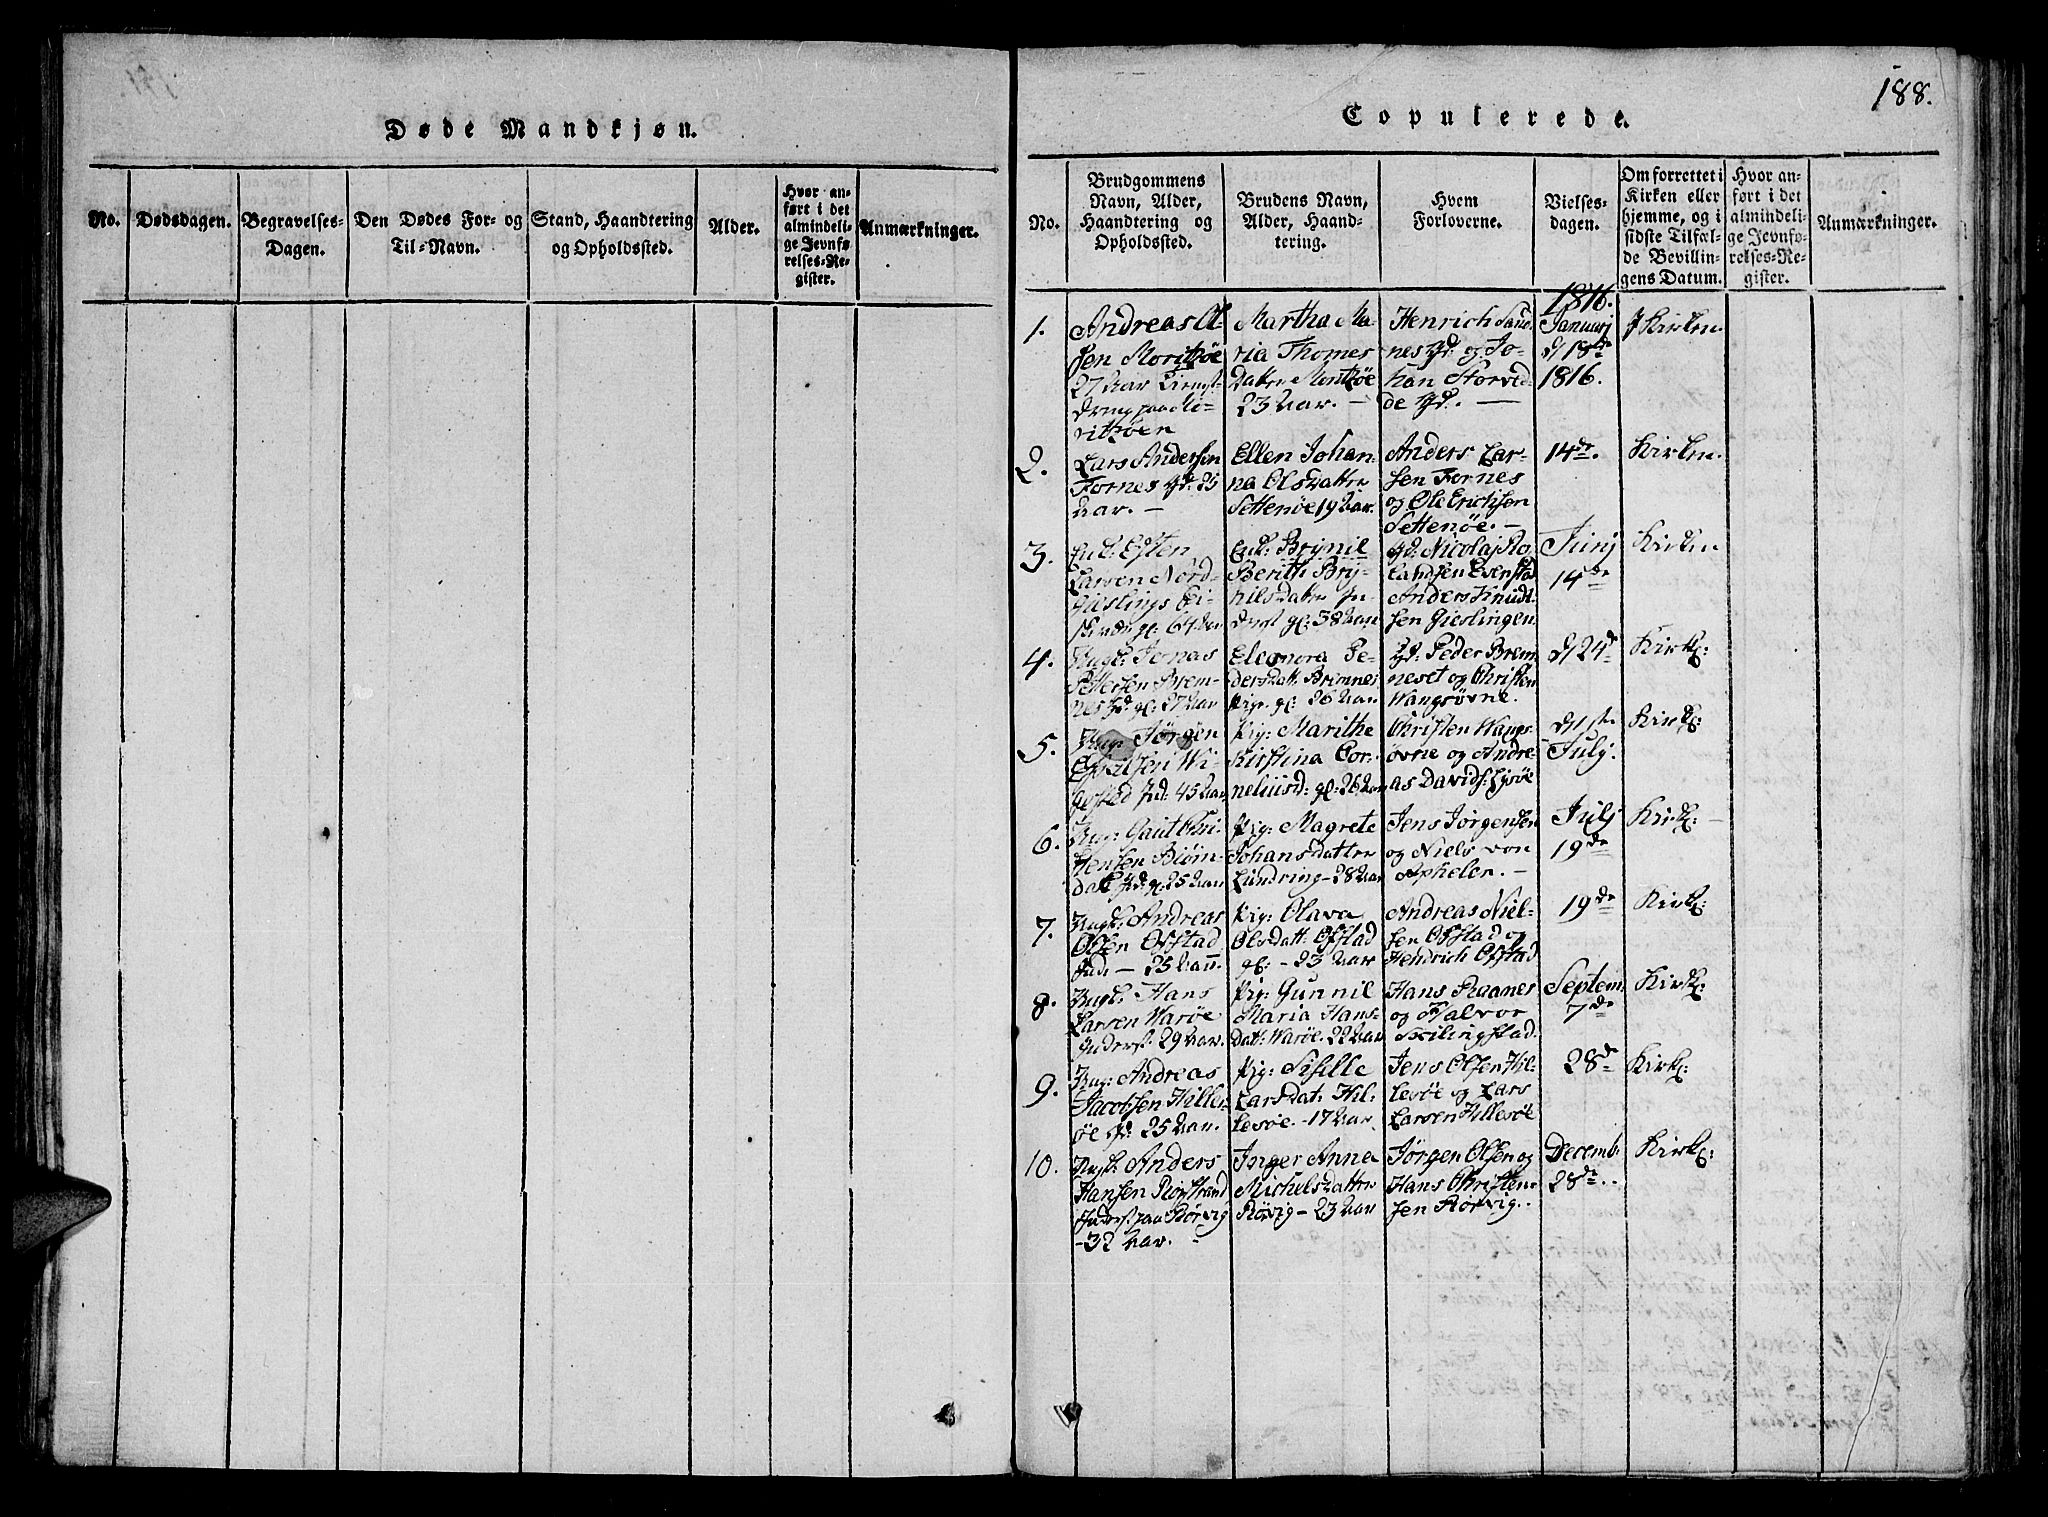 188.
Døde Mandkjøn.
No.
Dødsdagen.
Begravelses-
Dagen.
Den Dødes For- og
Til-Navn.
Stand, Haandtering
og Opholdssted.
Alder.
Hvor an-
ført i det
almindeli-
ge Jevnfø-
relses-Re-
gister.
Anmærkninger.
Copulerede.
No.
Brudgommens
Navn, Alder,
Haandtering og
Opholdssted.
Brudens Navn,
Alder, Haand-
tering.
Hvem
Forloverne.
Vielses-
dagen.
Om forrettet i
Kirken eller
hjemme, og i
sidste Tilfæl-
de Bevillin-
gens Datum.
Hvor an-
ført i det
almindeli-
ge Jevnfø-
relses-Re-
gister.
Anmærkninger.
1816.
1.
Andreas Ol
sen Moritzøe
27 aar
ritzøen
Martha Ma-
ria Thomes
datter Moritzøe
23 aar. -
Henrich Sand
nes gd. og Jo-
han Storvid
de gd. -
Januarj
d 18de
1816.
J Kirken
2.
Lars Andersen
Fornes gd. 25
aar. -
Ellen Johan-
na Olsdatter
Settenøe 19 aar.
Anders Lar-
sen Fornes
og Ole Erichsen
Settenøe. -
14de.
Kirken.
3.
Enk: Esten
Larsen Nord-
Gieslings
gl. 64 aar
Enk: Brynil
Berith Bry-
nilsdatter In-
derst gl: 58 aar
gd: Nicolaj Ro
landsen Evenstad
Anders Knudt-
sen Gieslingen
Junj
14de
Kirken
4.
Ungk: Jonas
Pettersen Brem-
nes gd. gl. 27 aar
Eleonora Pe-
dersdatt Brimnes
Pige gl: 26 aar
gd: Peder Brem
neset og Christen
Wangsøvne.
d 24d
Kirk:
5.
Ung: Jørgen
Wi-
gestad gd: 45 aar
Pig: Marithe
Kirstina Cor-
neliusd: gl: 26 aar
Christen Wangs-
øvne og Andre-
as Davids: Lysøe
d 1ste
Julj.
Kirk:
6.
Ung: Gaut Chri
stensen Biørn-
dal gd. gl. 25 aar
Pig: Magrete
Johansdatter
Lundring - 28 aar
Jens Jørgensen
og Niels von
Aphelen. -
Julj
19de
Kirk: -
7.
Ungk: Andreas
Olsen Ofstad
gd. - 25 aar.
Pig: Olava
Olsdatt: Ofstad
gl: - 23 aar
Andreas Niel-
sen Ofstad og
Hendrich Ofstad
19de
Kirk:
8.
Ungk: Hans
Larsen Warøe
Inderst. 29 aar.
Pig: Gunnil
Maria Hans-
datt: Warøe. 22 aar
Hans Raanes
og Halvor
Skilingstad.
Septem.
7de
Kirk:
9.
Ung: Andreas
Jacobsen Hille-
øe gd: 25 aar.
Pig: Siselle
Larsdat: Hil-
lesøe. - 17 aar.
Jens Olsen Hil-
lesøe og Lars
Larsen Hillesøe
28d
Kirk:
10.
Ungk: Anders
Hansen Rørstrand
Inderst paa Rørvig
- 32 aar.
Inger Anna
Michelsdatter
Rørvig - 23 aar
Jørgen Olsen og
Hans Christen-
sen Rørvig..
Decemb.
28de..
Kirk: